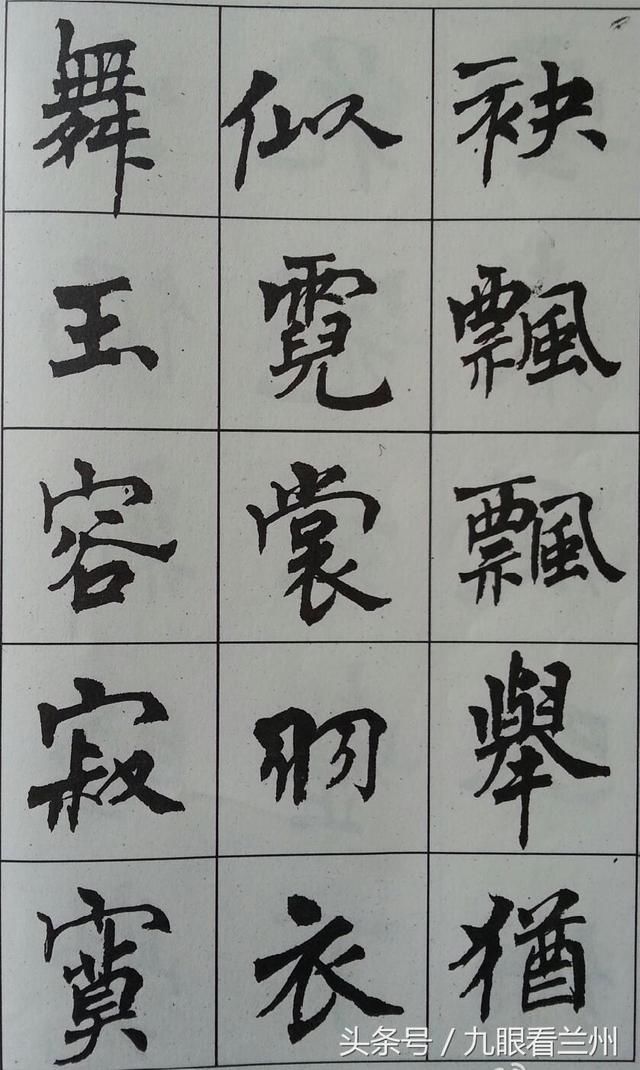 袂飄飄舉猶
似霓裳羽衣
舞玉容寂寞
头条号 / 九眼看兰州